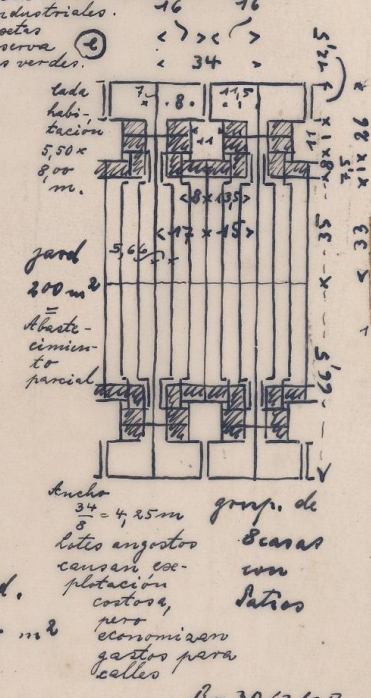 industriales.
setas
serva
s verdes.
e
16 16
34
cada
habi-
tación
5,50 x
8,00
m.
7
8
11,5
11
12,5
11
8 x 1 x 26
7,5
8 x 13,5
17 x 15
5,66
35
33
66,5
jard
200 m²
=
Abaste-
cimien-
to
parcial
Ancho
34/8 = 4,25 m
Lotes angostos
causan ex-
plotación
costosa,
pero
economizan
gastos para
calles
grup. de
8 casas
con
Patios
d.
m²